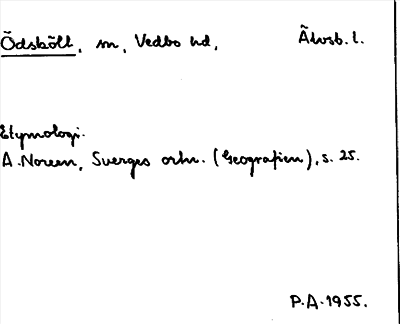 Ödsbölt, m, Vedbo hd, Älvsb. l.
Etymologi.
A. Noreen, Sverges ortn. (Geografien), s. 25.
P.A. 1955.